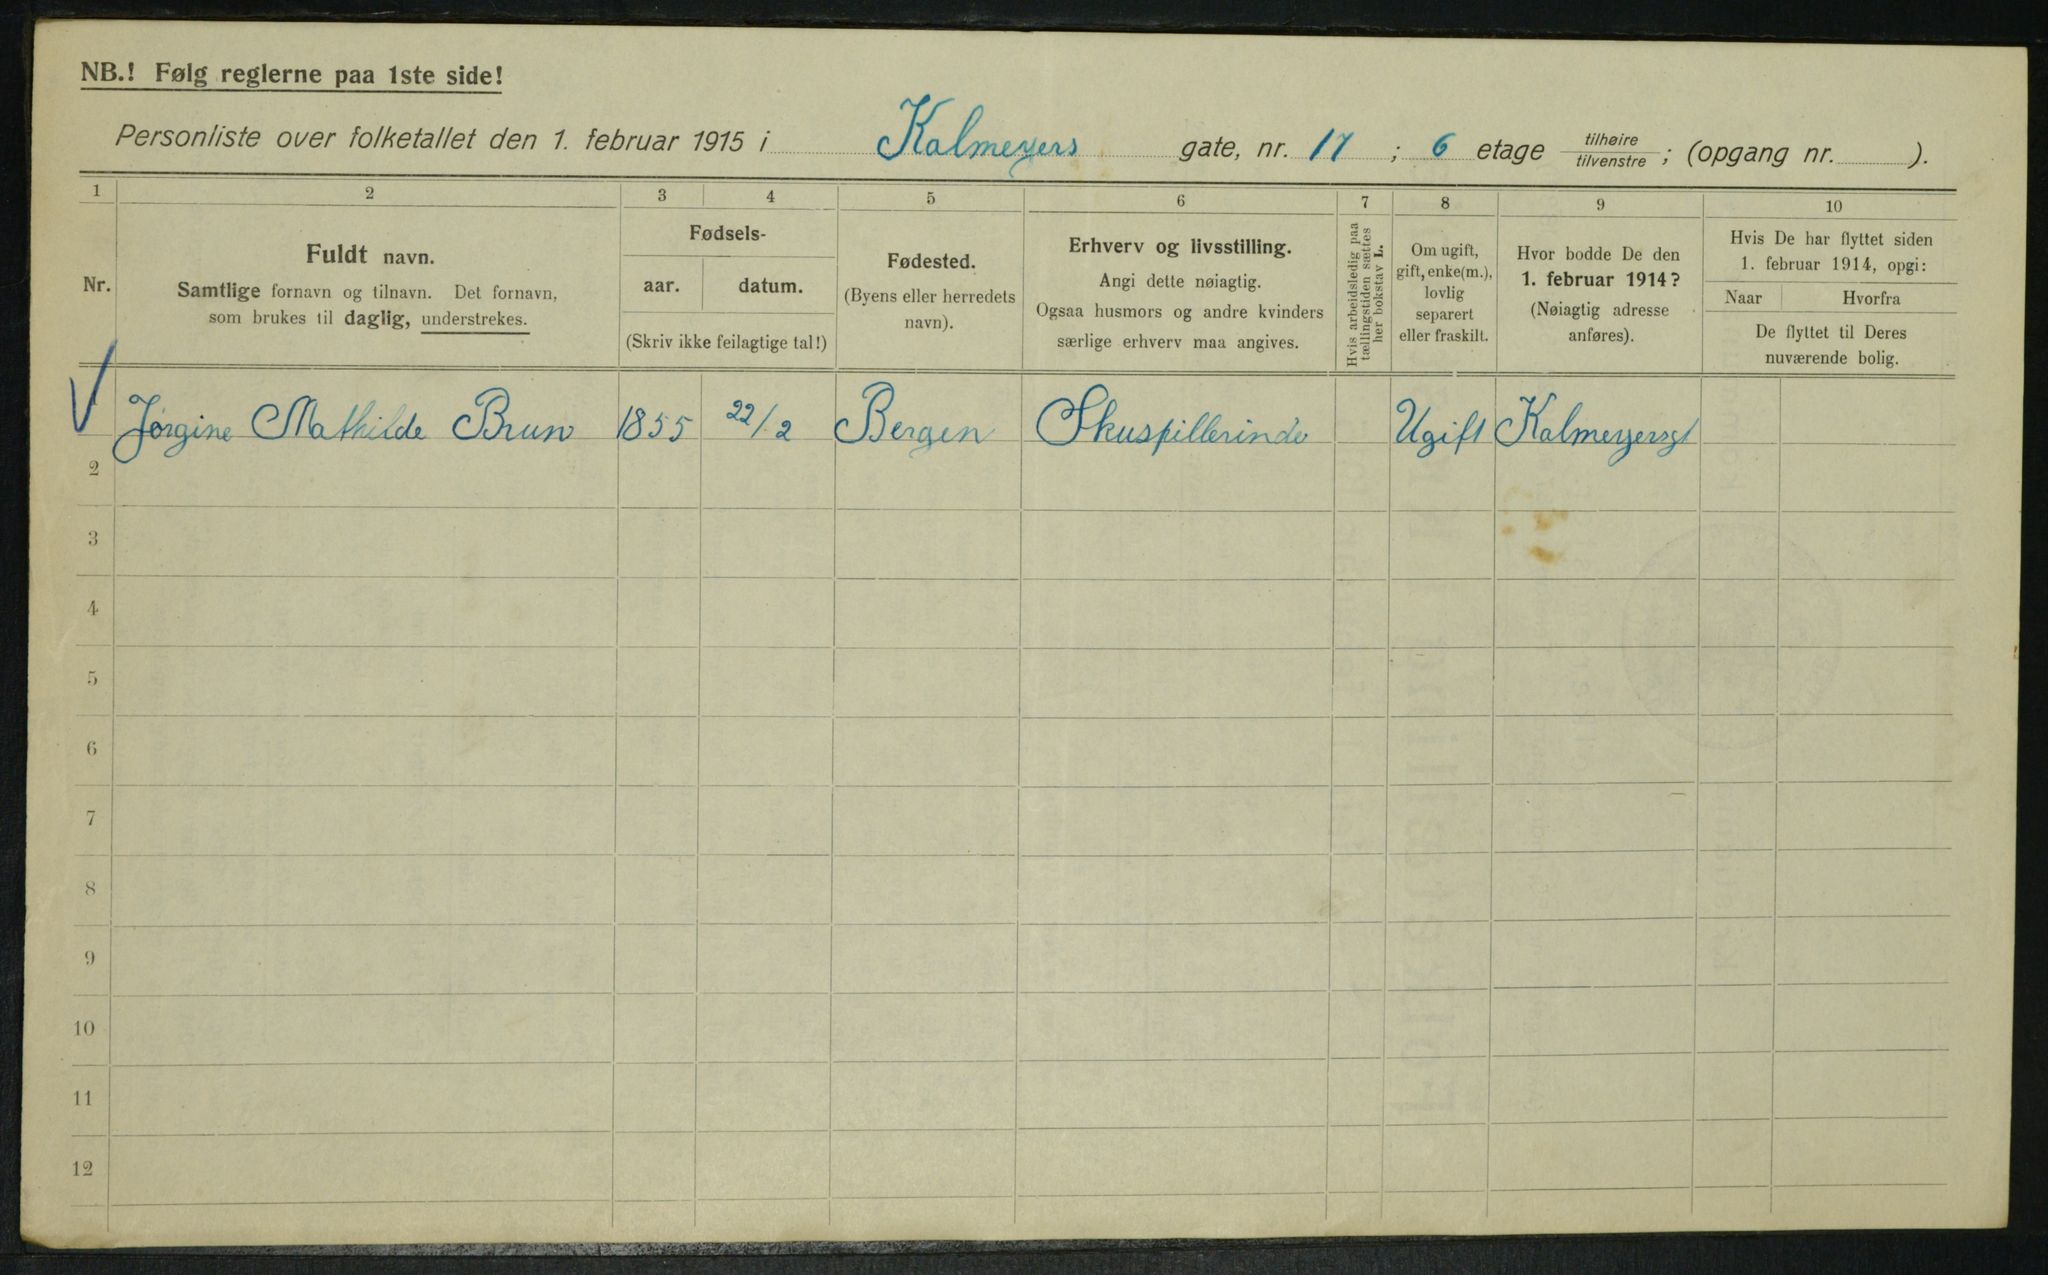 NB.! Følg reglerne paa 1ste side!
Personliste over folketallet den 1. februar 1915 i Kalmeyers gate, nr. 17 ; 6 etage tilhøire tilvenstre ; (opgang nr. ).
1 2 3 4 5 6 7 8 9 10
Nr.
Fuldt navn.
Samtlige fornavn og tilnavn. Det fornavn,
som brukes til daglig, understrekes.
Fødsels-
aar. datum.
(Skriv ikke feilagtige tal!)
Fødested.
(Byens eller herredets
navn).
Erhverv og livsstilling.
Angi dette nøiagtig.
Ogsaa husmors og andre kvinders
særlige erhverv maa angives.
Hvis arbeidsledig paa
tællingstiden sættes
her bokstav L.
Om ugift,
gift, enke(m.),
lovlig
separert
eller fraskilt.
Hvor bodde De den
1. februar 1914?
(Nøiagtig adresse
anføres).
Hvis De har flyttet siden
1. februar 1914, opgi:
Naar Hvorfra
De flyttet til Deres
nuværende bolig.
Jørgine Mathilde Brun 1855 22/2 Bergen Skuspillerinde Ugift Kalmeyersgt
2
3
4
5
6
7
8
9
10
11
12